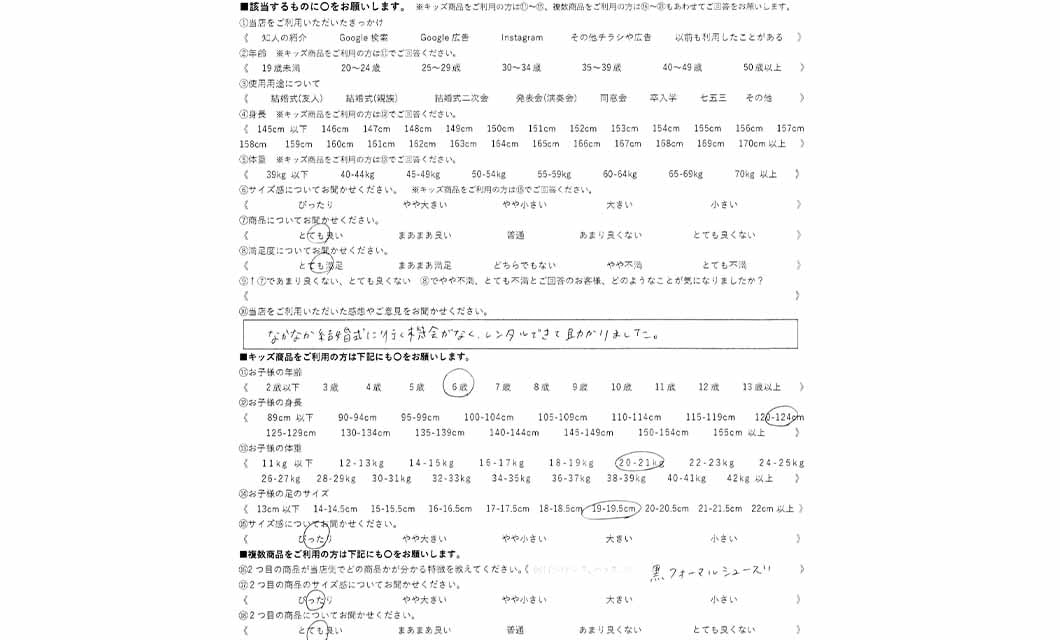 ■該当するものに〇をお願いします。 ※キッズ商品をご利用の方は⑪～⑮、複数商品をご利用の方は⑯～⑱もあわせてご回答をお願いします。
①当店をご利用いただいたきっかけ
《 知人の紹介 Google 検索 Google 広告 Instagram その他チラシや広告 以前も利用したことがある 》
②年齢 ※キッズ商品をご利用の方は⑪でご回答ください。
《 19歳未満 20～24歳 25～29歳 30～34歳 35～39歳 40～49歳 50歳以上 》
③使用用途について
《 結婚式(友人) 結婚式(親族) 結婚式二次会 発表会(演奏会) 同窓会 卒入学 七五三 その他 》
④身長 ※キッズ商品をご利用の方は⑫でご回答ください。
《 145cm 以下 146cm 147cm 148cm 149cm 150cm 151cm 152cm 153cm 154cm 155cm 156cm 157cm
158cm 159cm 160cm 161cm 162cm 163cm 164cm 165cm 166cm 167cm 168cm 169cm 170cm 以上 》
⑤体重 ※キッズ商品をご利用の方は⑬でご回答ください。
《 39kg 以下 40-44kg 45-49kg 50-54kg 55-59kg 60-64kg 65-69kg 70kg 以上 》
⑥サイズ感についてお聞かせください。 ※キッズ商品をご利用の方は⑮でご回答ください。
《 ぴったり やや大きい やや小さい 大きい 小さい 》
⑦商品についてお聞かせください。
《 とても良い まあまあ良い 普通 あまり良くない とても良くない 》
⑧満足度についてお聞かせください。
《 とても満足 まあまあ満足 どちらでもない やや不満 とても不満 》
⑨↑⑦であまり良くない、とても良くない ⑧でやや不満、とても不満とご回答のお客様、どのようなことが気になりましたか？
《 》
⑩当店をご利用いただいた感想やご意見をお聞かせください。
なかなか結婚式に行く機会がなく、レンタルできて助かりました。
■キッズ商品をご利用の方は下記にも〇をお願いします。
⑪お子様の年齢
《 2歳以下 3歳 4歳 5歳 6歳 7歳 8歳 9歳 10歳 11歳 12歳 13歳以上 》
⑫お子様の身長
《 89cm 以下 90-94cm 95-99cm 100-104cm 105-109cm 110-114cm 115-119cm 120-124cm
125-129cm 130-134cm 135-139cm 140-144cm 145-149cm 150-154cm 155cm 以上 》
⑬お子様の体重
《 11kg 以下 12-13kg 14-15kg 16-17kg 18-19kg 20-21kg 22-23kg 24-25kg
26-27kg 28-29kg 30-31kg 32-33kg 34-35kg 36-37kg 38-39kg 40-41kg 42kg 以上 》
⑭お子様の足のサイズ
《 13cm 以下 14-14.5cm 15-15.5cm 16-16.5cm 17-17.5cm 18-18.5cm 19-19.5cm 20-20.5cm 21-21.5cm 22cm 以上 》
⑮サイズ感についてお聞かせください。
《 ぴったり やや大きい やや小さい 大きい 小さい 》
■複数商品をご利用の方は下記にも〇をお願いします。
⑯2つ目の商品が当店側でどの商品かが分かる特徴を教えてください。《 黒 フォーマルシューズ 》
⑰2つ目の商品のサイズ感についてお聞かせください。
《 ぴったり やや大きい やや小さい 大きい 小さい 》
⑱2つ目の商品についてお聞かせください。
《 とても良い まあまあ良い 普通 あまり良くない とても良くない 》